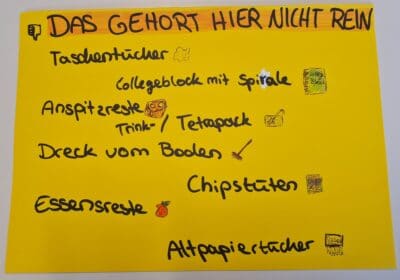 DAS GEHÖRT HIER NICHT REIN
Taschentücher
Collegeblock mit Spirale
Anspitzreste
Trink-/Tetrapack
Dreck vom Boden
Chipstüten
Essensreste
Altpapiertücher